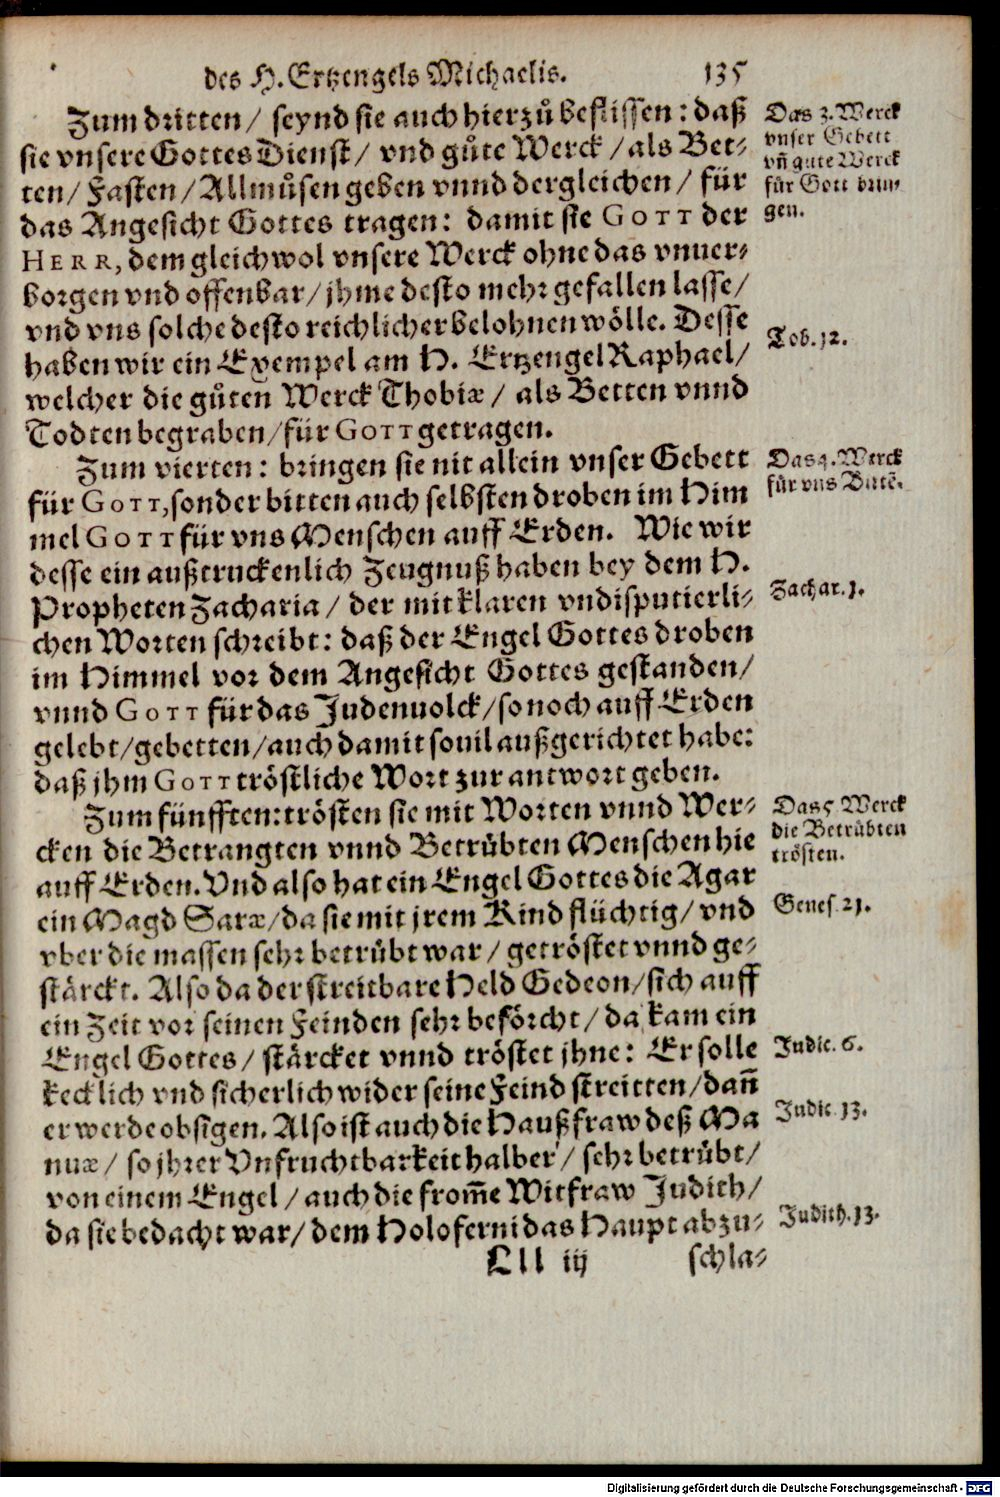 des H. Ertzengels Michaelis. 135
Zum dritten/ seynd sie auch hierzů beflissen: daß
sie vnsere Gottes Dienst/ vnd gůte Werck/ als Bet-
ten/ Fasten/ Allmůsen geben vnnd dergleichen/ für
das Angesicht Gottes tragen: damit sie GOTT der
HERR, dem gleichwol vnsere Werck ohne das vnuer-
borgen vnd offenbar/ jhme desto mehr gefallen lasse/
vnd vns solche desto reichlicher belohnen wölle. Desse
haben wir ein Exempel am H. Ertzengel Raphael/
welcher die gůten Werck Thobiæ/ als Betten vnnd
Todten begraben/ für GOTT getragen.
Zum vierten: bringen sie nit allein vnser Gebett
für GOTT, sonder bitten auch selbsten droben im Him
mel GOTT für vns Menschen auff Erden. Wie wir
desse ein außtruckenlich Zeugnuß haben bey dem H.
Propheten Zacharia/ der mit klaren vndisputierli-
chen Worten schreibt: daß der Engel Gottes droben
im Himmel vor dem Angesicht Gottes gestanden/
vnnd GOTT für das Judenuolck/ so noch auff Erden
gelebt/ gebetten/ auch damit souil außgerichtet habe:
daß jhm GOTT tröstliche Wort zur antwort geben.
Zum fünfften: trösten sie mit Worten vnnd Wer-
cken die Betrangten vnnd Betrübten Menschen hie
auff Erden. Vnd also hat ein Engel Gottes die Agar
ein Magd Saræ/ da sie mit jrem Kind flüchtig/ vnd
vber die massen sehr betrübt war/ getröstet vnnd ge-
stärckt. Also da der streitbare Held Gedeon/ sich auff
ein Zeit vor seinen Feinden sehr beförcht/ da kam ein
Engel Gottes/ stärcket vnnd tröstet jhne: Er solle
kecklich vnd sicherlich wider seine Feind streitten/ dañ
er werde obsigen. Also ist auch die Haußfraw deß Ma
nuæ/ so jhrer Vnfruchtbarkeit halber/ sehr betrübt/
von einem Engel/ auch die from̃e Witfraw Judith/
da sie bedacht war/ dem Holoferni das Haupt abzu-
Lll iij schla-
Das 3. Werck
vnser Gebett
vñ gute Werck
für Gott brin-
gen.
Tob. 12.
Das 4. Werck
für vns Bittẽ.
Zachar. 1.
Das 5. Werck
die Betrübten
trösten.
Genes. 21.
Judic. 6.
Judic. 13.
Judith. 13.
Digitalisierung gefördert durch die Deutsche Forschungsgemeinschaft - DFG